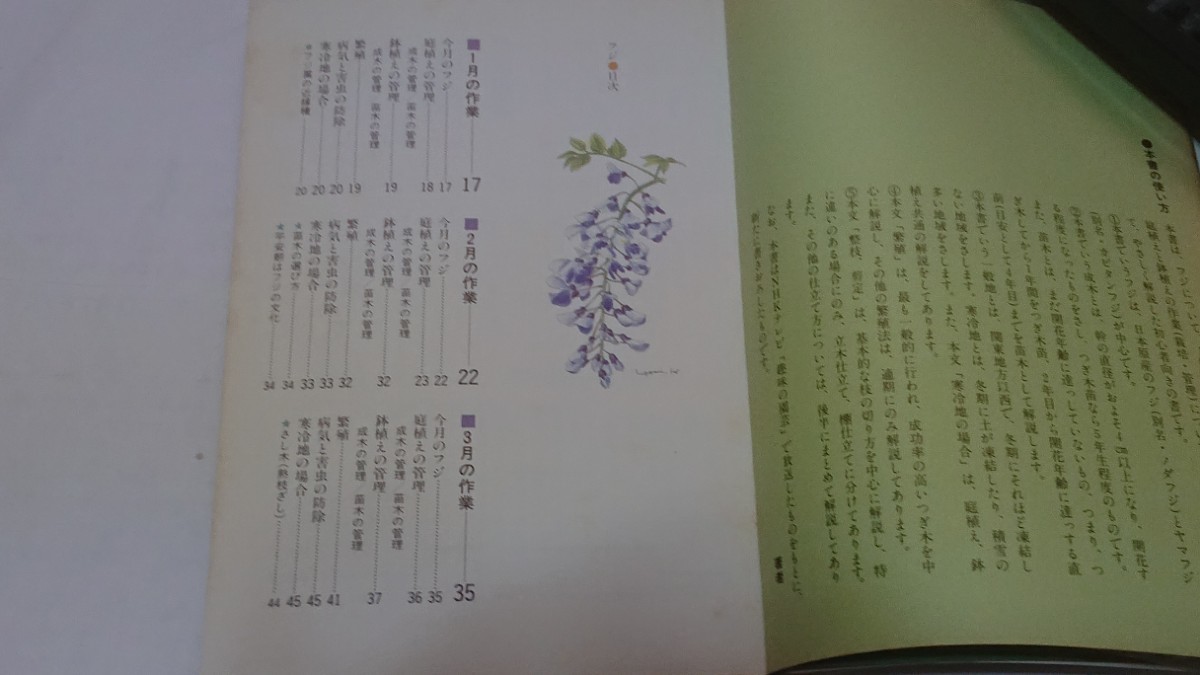 ●本書の使い方
本書は、フジについて、
庭植えと鉢植えの作業(栽培・管理)について、やさしく解説した初心者向きの書です。
①本書でいうフジは、日本原産のフジ(別名・ノダフジ)とヤマフジ
(別名・カピタンフジ)が中心です。
②本書でいう成木とは、幹の直径がおよそ4cm以上になり、開花す
る程度になったものをさし、つぎ木苗なら5年生程度のものです。
また、苗木とは、まだ開花年齢に達していないもの、つまり、つ
ぎ木してから1年間をつぎ木苗、2年目から開花年齢に達する直
前(目安として4年目)までを苗木として解説します。
③本書でいう一般地とは、関東地方以西で、冬期にそれほど凍結し
ない地域をさします。寒冷地とは、冬期に土が凍結したり、積雪の
多い地域をさします。また、本文「寒冷地の場合」は、庭植え、鉢
植え共通の解説をしてあります。
④本文「繁殖」は、最も一般的に行われ、成功率の高いつぎ木を中
心に解説し、その他の繁殖法は、適期にのみ解説してあります。
⑤本文「整枝、剪定」は、基本的な枝の切り方を中心に解説し、特
に違いのある場合にのみ、立木仕立て、棚仕立てに分けてあります。
また、その他の仕立て方については、後半にまとめて解説してあり
ます。
なお、本書はNHKテレビ「趣味の園芸」で放送したものをもとに、
新たに書きおろしたものです。
著者
フジ●目次
■1月の作業 17
今月のフジ 17
庭植えの管理 18
成木の管理 苗木の管理
鉢植えの管理 19
成木の管理 苗木の管理
繁殖 19
病気と害虫の防除 20
寒冷地の場合 20
★フジ属の近縁種 20
■2月の作業 22
今月のフジ 22
庭植えの管理 23
成木の管理 苗木の管理
鉢植えの管理 32
成木の管理 苗木の管理
繁殖 32
病気と害虫の防除 33
寒冷地の場合 33
★苗木の選び方 34
★平安朝はフジの文化 34
■3月の作業 35
今月のフジ 35
庭植えの管理 36
成木の管理 苗木の管理
鉢植えの管理 37
成木の管理 苗木の管理
繁殖 41
病気と害虫の防除 45
寒冷地の場合 45
★さし木(熟枝ざし) 44